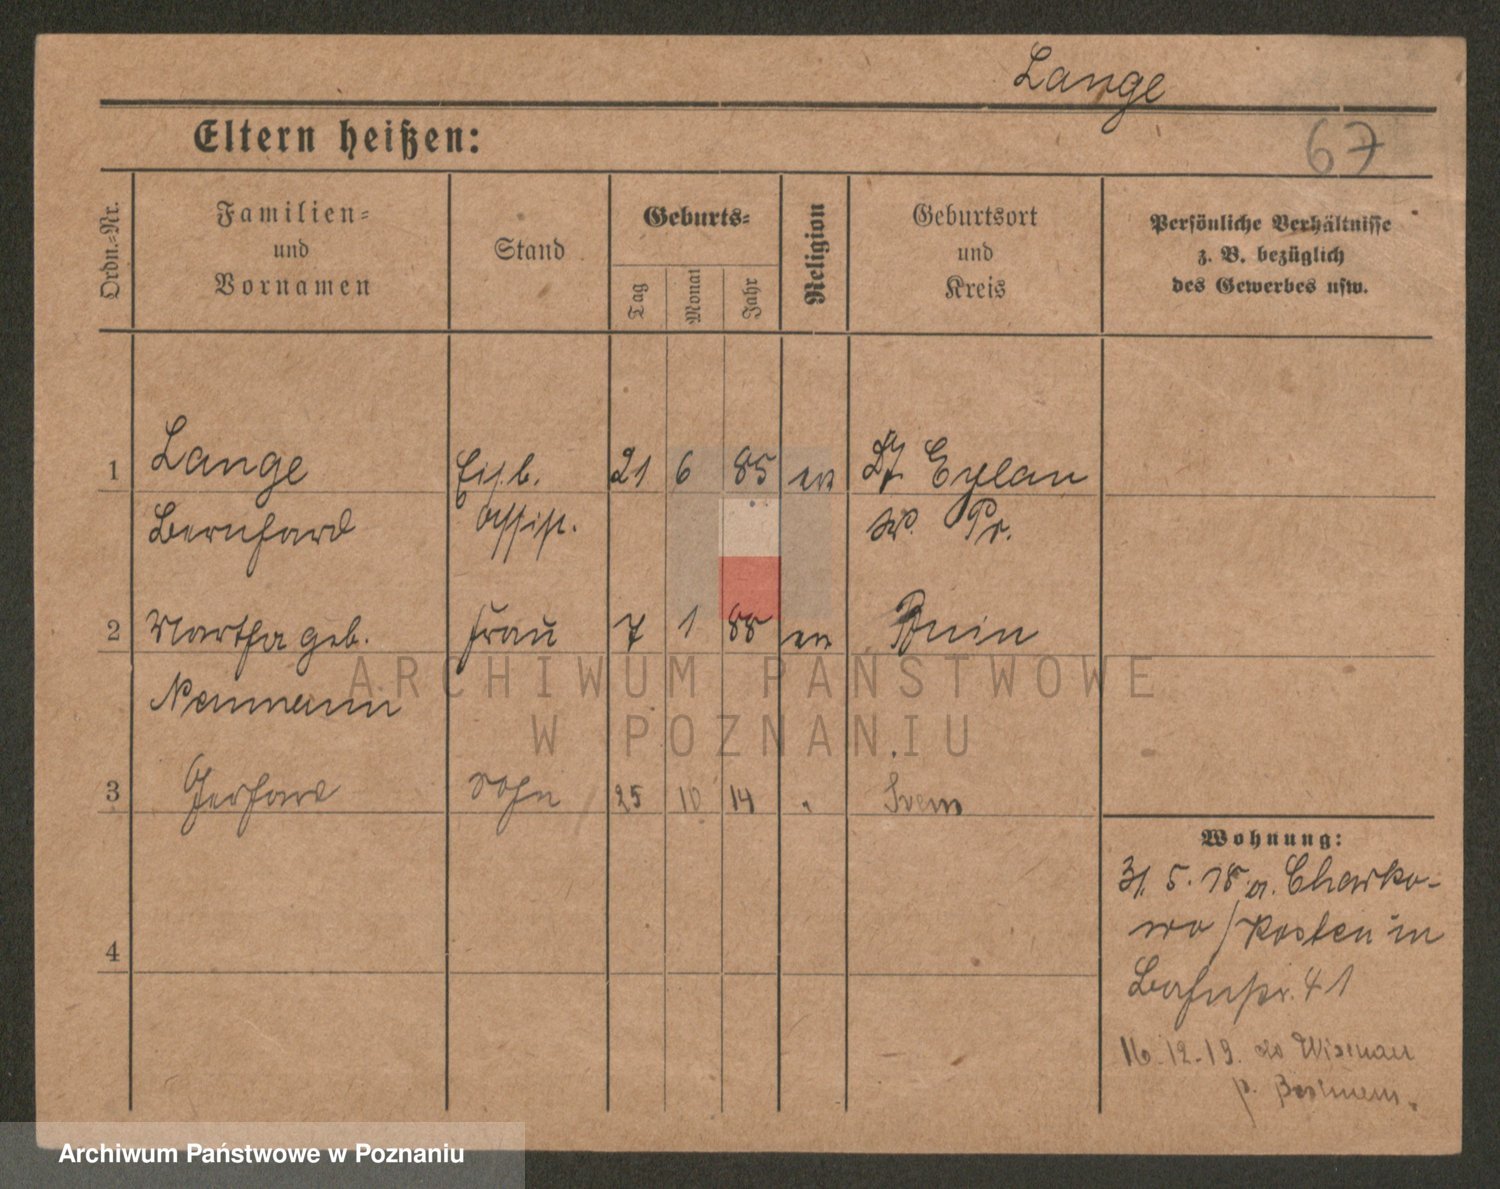 Lange
67
Eltern heißen:
Ordn.=Nr.
Familien=
und
Vornamen
Stand
Geburts=
Tag
Monat
Jahr
Religion
Geburtsort
und
Kreis
Persönliche Verhältnisse
z. B. bezüglich
des Gewerbes usw.
1 Lange Eisb. 21 6 85 ev Dt Eylau
Bernhard Assist. W. Pr.
2 Martha geb. Frau 7 1 88 ev Bnin
Neumann
ARCHIWUM PAŃSTWOWE
W POZNANIU
3 Gerhard Sohn 25 10 14 "
Wohnung:
31. 5. 18 a. Charko-
wo / Kosten in
Bahnstr. 41
4
16.-12.-19.
Archiwum Państwowe w Poznaniu